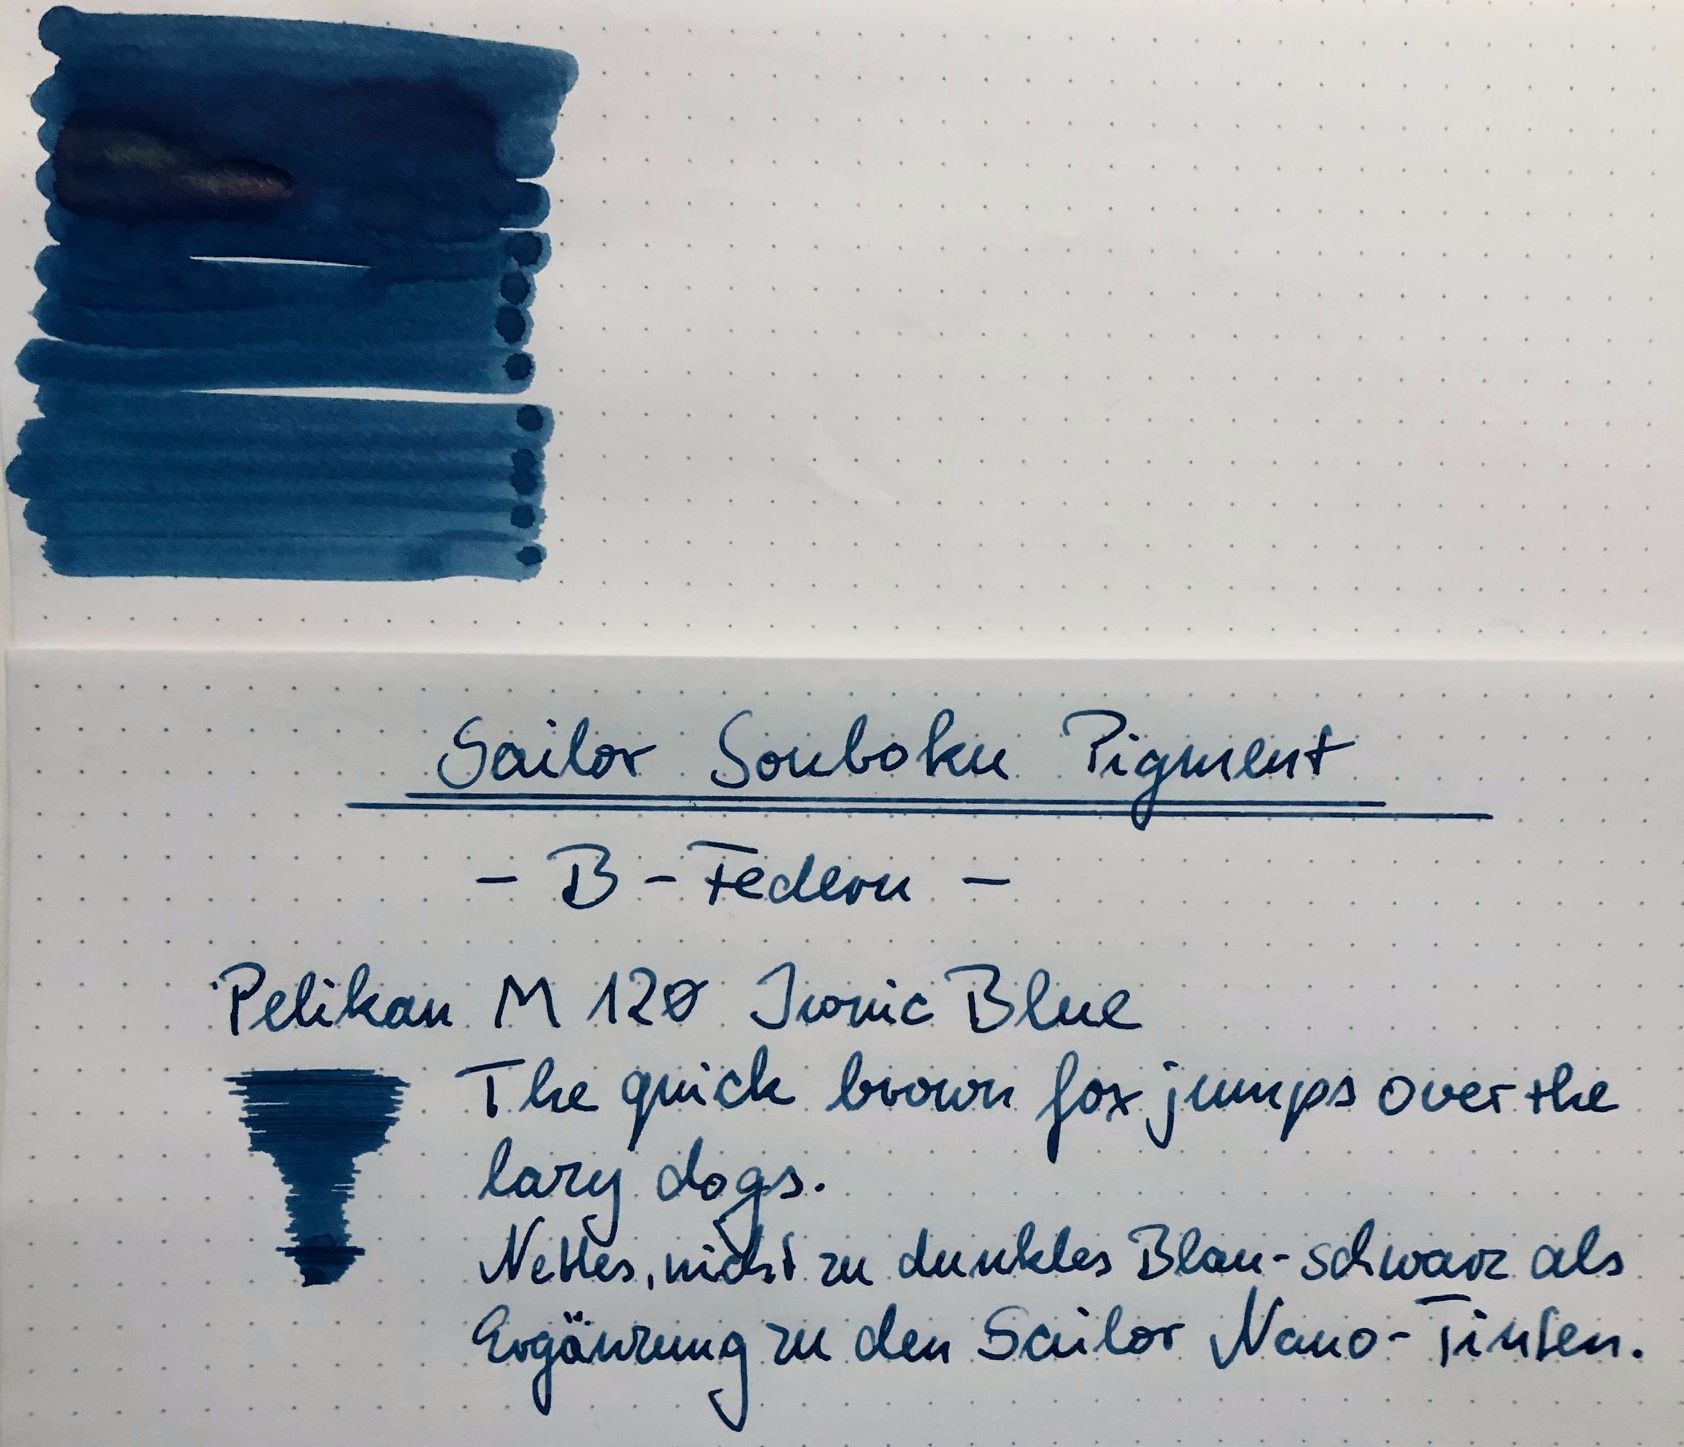 Sailor Souboku Pigment
- B - Federn -
Pelikan M 120 Iconic Blue
The quick brown fox jumps over the
lazy dogs.
Nettes, nicht zu dunkles Blau-schwarz als
Ergänzung zu den Sailor Nano-Tinten.